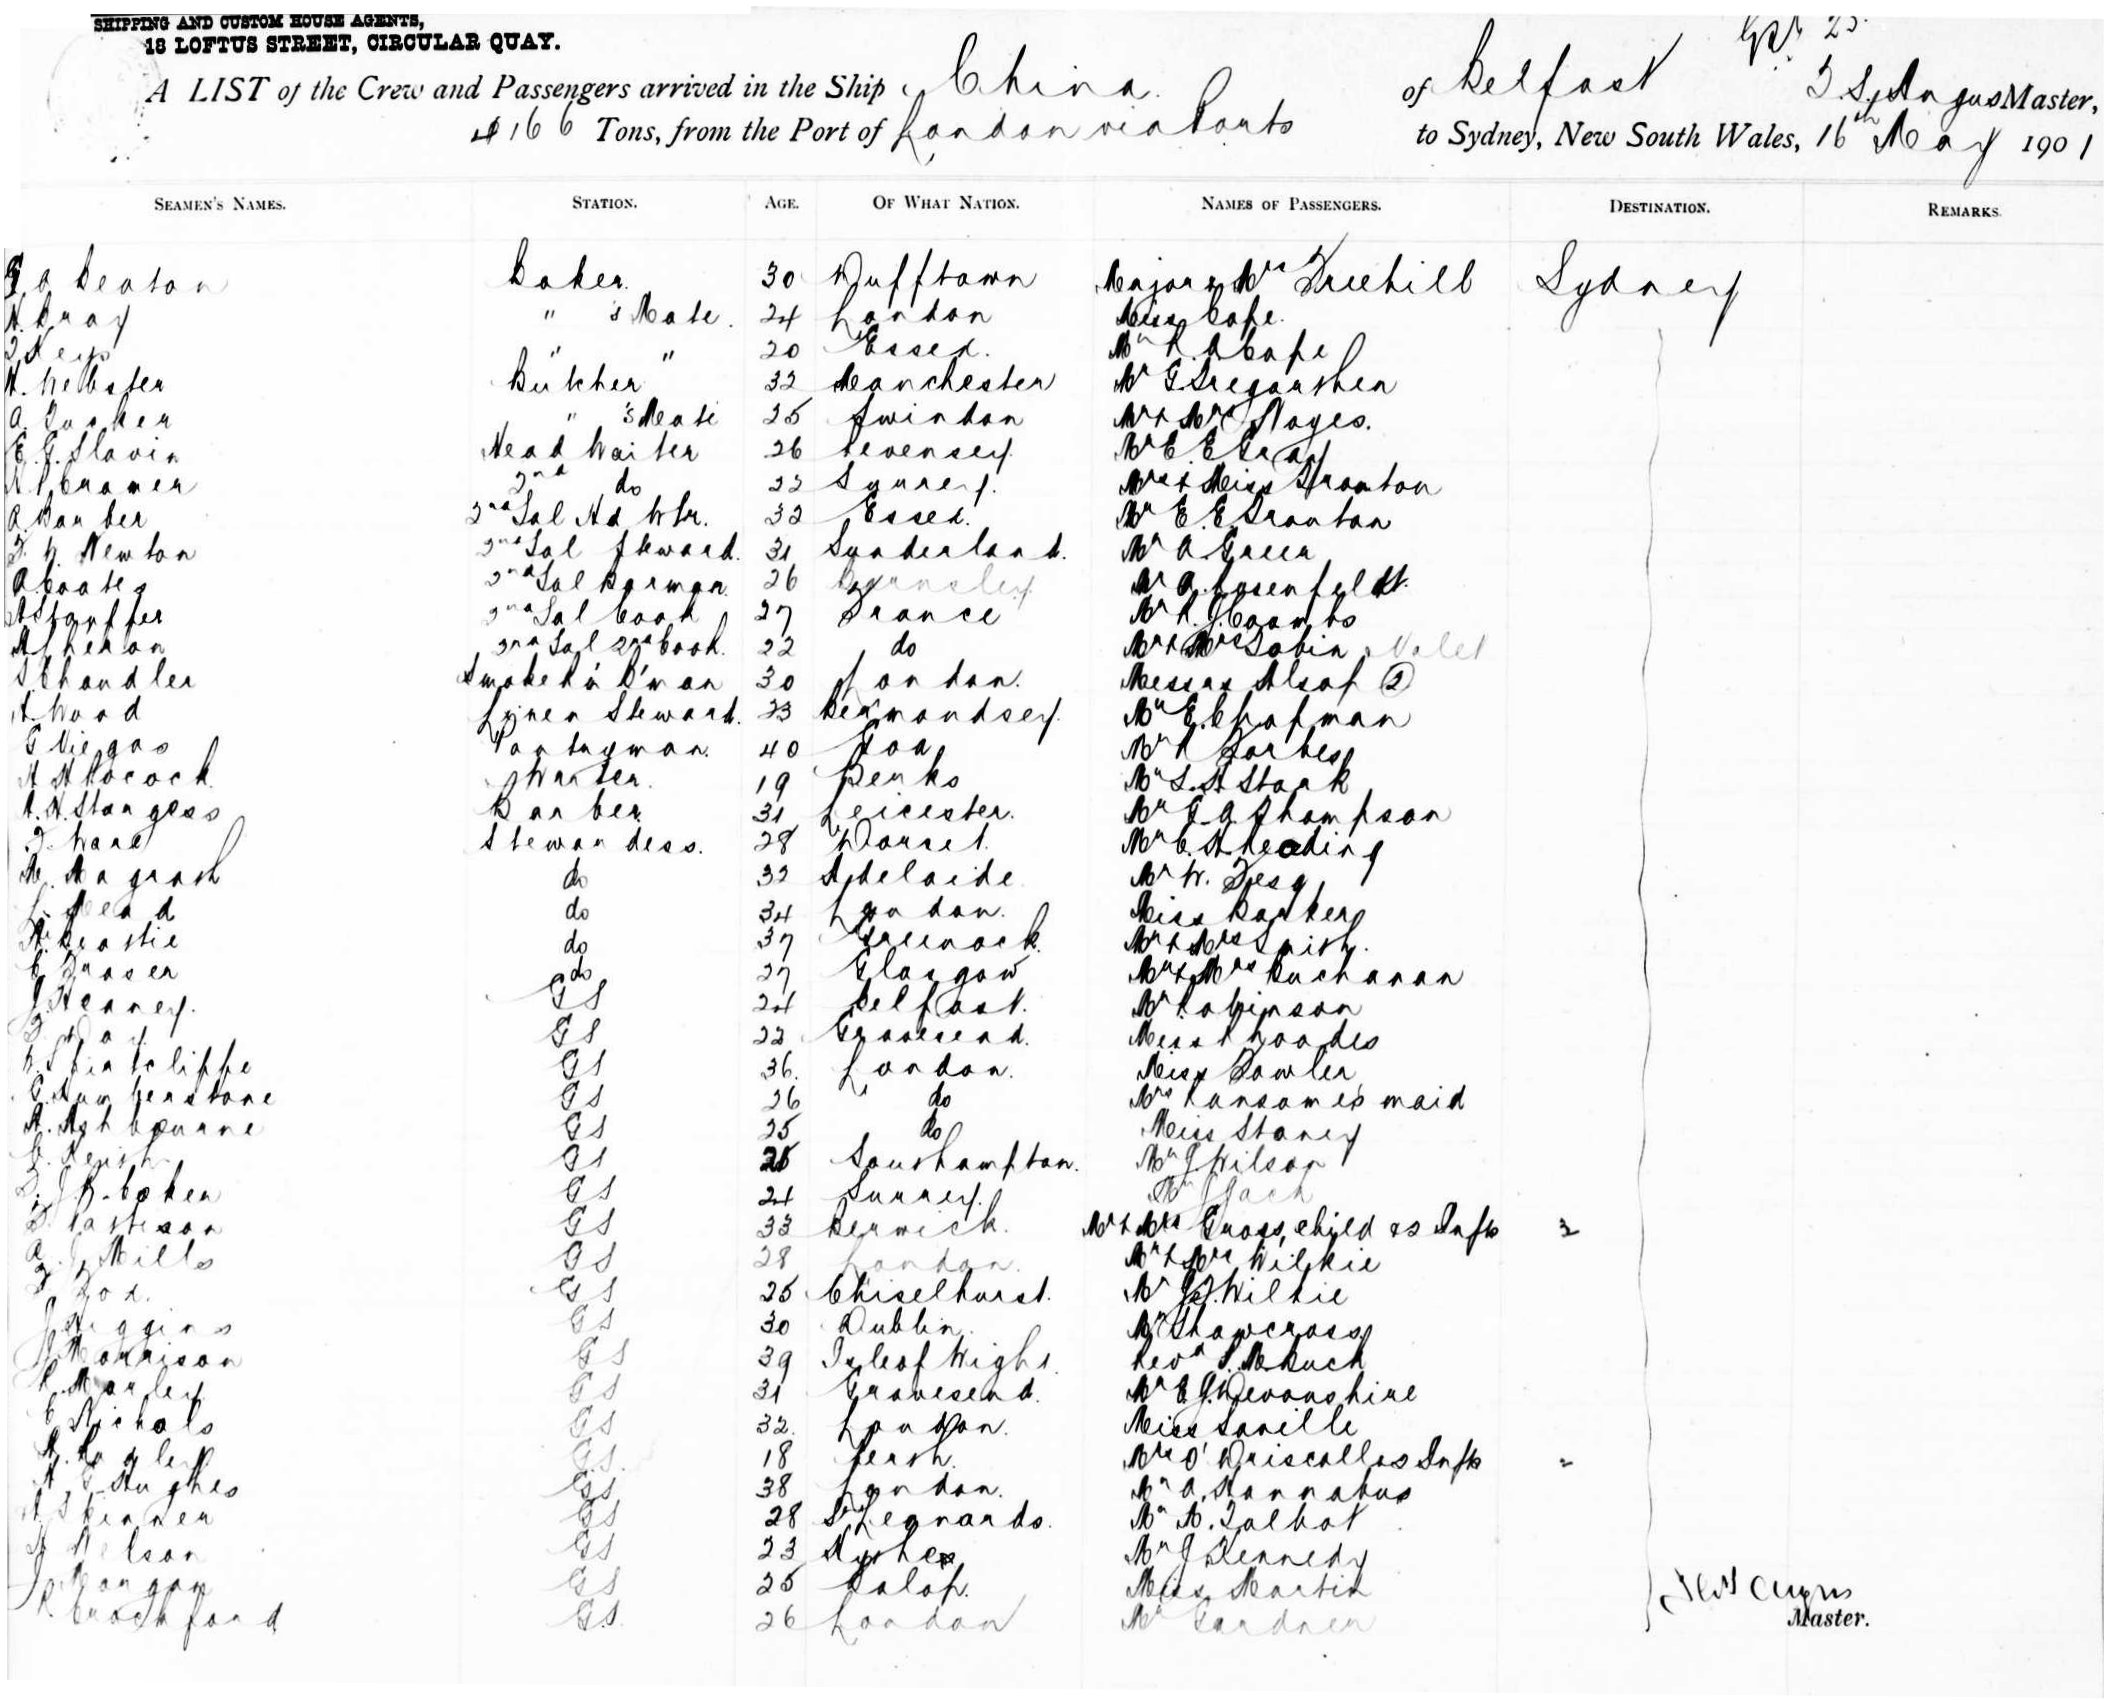 SHIPPING AND CUSTOM HOUSE AGENTS,
18 LOFTUS STREET, CIRCULAR QUAY.
A LIST of the Crew and Passengers arrived in the Ship China. of Belfast Angus Master,
4166 Tons, from the Port of London via Ports to Sydney, New South Wales, 16th May 1901
SEAMEN'S NAMES. STATION. AGE. OF WHAT NATION. NAMES OF PASSENGERS. DESTINATION. REMARKS.
Deaton Baker. 30 Dufftown Major & Mrs Freehill Sydney
H. Bray " 's Mate. 24 London Miss Cape.
" " 20 Essex. Mr R. A Cape
H. Webster Butcher 32 Manchester Mr G. Tregarthen
A. Tucker " 's Mate 25 Swindon Mr & Mrs Noyes.
E. G. Slavin Head Waiter 26 Pevensey. Mr E E Gray
Cramer 2nd do 22 Surrey. Mrs & Miss Stranton
A. Barber 2nd Sal Hd Wtr. 32 Essex. Mr E. E Stranton
Newton 2nd Sal Steward. 31 Sunderland. Mr A. Green
A Coates 2nd Sal Barman 26 Burnsley. Mr A. Rosenfeldt.
Stauffer 2nd Sal Cook 27 France Mr R. J. Coombs
A Cheron 2nd Sal 2nd Cook. 22 do Mr & Mrs Tobin Valet
S Chandler Smoked'g B'man 30 London. Messrs Alsop (2)
H. Wood Linen Steward. 23 Bermondsey. Mr E. Chapman
G Viegas Pantryman. 40 Goa Mr R Forbes
H. H Pocock Writer. 19 Berks Mr L. H Stark
A. H. Sturgess Barber 31 Leicester. Mr G. A. Thompson
Ware Stewardess. 28 Dorset. Mr C. H. Reading
M. Magrath do 32 Adelaide Mr W.
L. Mead do 34 London. Miss Barker
Beattie do 37 Greenock. Mr & Mrs
C Fraser do 27 Glasgow Mr & Mrs Buchanan
J Heaney. GS 24 Belfast. Mr Robinson
Day GS 22 Gravesend. Miss Rhoades
Shirtcliffe GS 36. London. Miss Fowler
G. Humberstone GS 26 do Mrs Ransome's maid
A. Ashbourne GS 25 do Miss Storey
Keish GS 25 Southampton. Mr J Wilson
Coker GS 24 Surrey. Mr J Jack
Patteson GS 33 Berwick. Mr & Mrs Gross, child & 2 Infts 3
A. J. Mills GS 28 London. Mr & Mrs Wilkie
Fox. GS 25 Chiselhurst. Mr J. J. Wilkie
J Higgins GS 30 Dublin. Mr Shawcross
Morrison GS 39 Isle of Wight. Revd S. M. Buck
R. Marley GS 31 Gravesend. Mr E. J. Devonshire
C Nichols GS 32. London. Miss Saville
GS. 18 Perth. Mrs O'Driscoll & 2 Infts 2
H G. Hughes GS 38 London. Mr A. Hannabus
H. Skinner GS 28 St Leonards. Mr M. Talbot
Nelson GS 23 Hythe Mr J Kennedy
J Morgan GS 25 Salop. Miss Martin
R Crockford GS. 26 London Mr Gardner
Angus
Master.